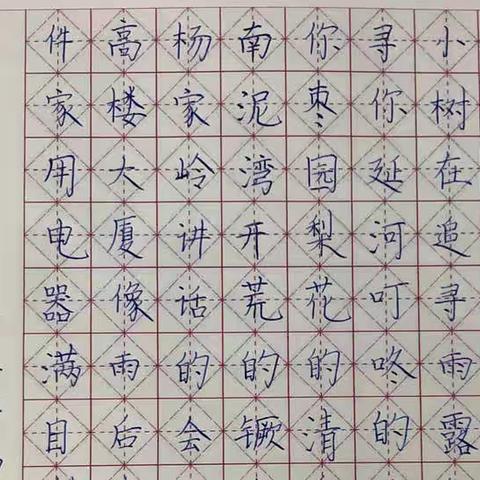 小树在追寻雨露
寻你延河叮咚的
你枣园梨花的清
南泥湾开荒的镢
杨家岭讲话的会
高楼大厦像雨后
件家用电器满目